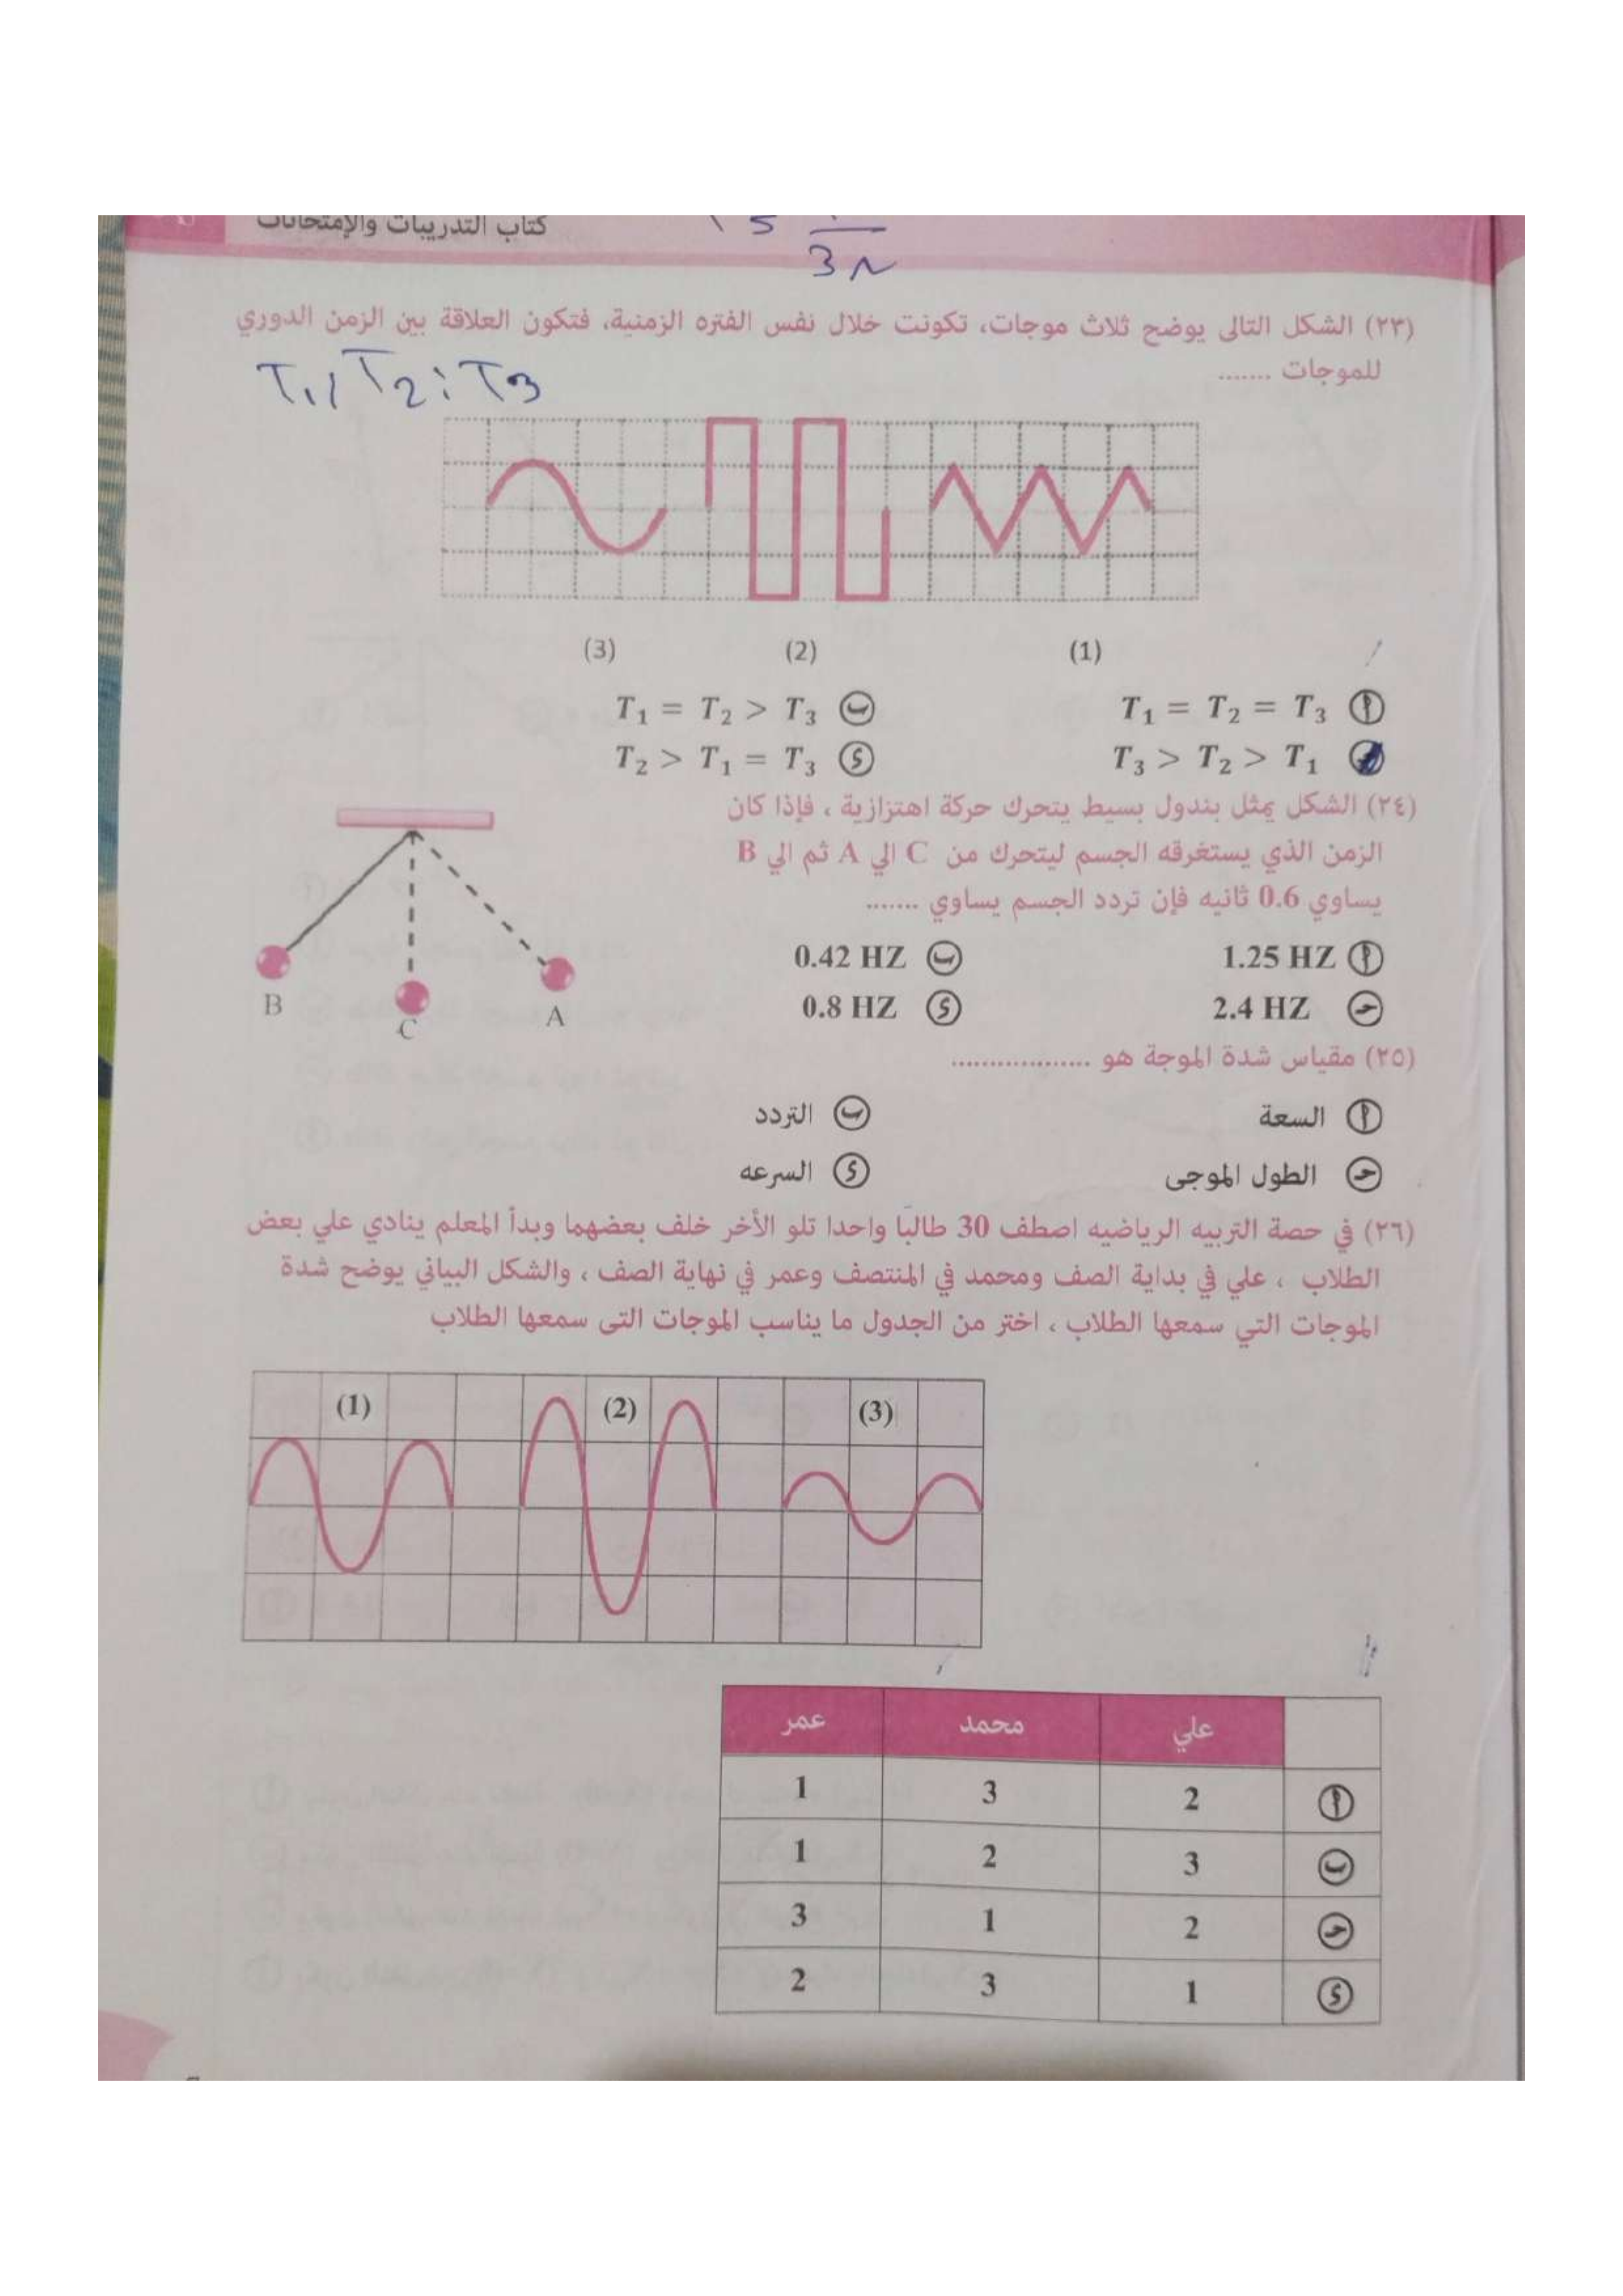 كتاب التدريبات والإمتحانات
3
(٢٣) الشكل التالى يوضح ثلاث موجات، تكونت خلال نفس الفتره الزمنية، فتكون العلاقة بين الزمن الدوري
للموجات .......
T1, T2 : T3
(3) (2) (1)
أ T1 = T2 = T3 ب T1 = T2 > T3
T3 > T2 > T1 د T2 > T1 = T3
(٢٤) الشكل يمثل بندول بسيط يتحرك حركة اهتزازية ، فإذا كان
الزمن الذي يستغرقه الجسم ليتحرك من C الي A ثم الي B
يساوي 0.6 ثانيه فإن تردد الجسم يساوي .......
B C A
أ 1.25 HZ ب 0.42 HZ
ج 2.4 HZ د 0.8 HZ
(٢٥) مقياس شدة الموجة هو ..................
أ السعة ب التردد
ج الطول الموجى د السرعه
(٢٦) في حصة التربيه الرياضيه اصطف 30 طالبًا واحدا تلو الأخر خلف بعضهما وبدأ المعلم ينادي علي بعض
الطلاب ، علي في بداية الصف ومحمد في المنتصف وعمر في نهاية الصف ، والشكل البياني يوضح شدة
الموجات التي سمعها الطلاب ، اختر من الجدول ما يناسب الموجات التى سمعها الطلاب
(1) (2) (3)
علي محمد عمر
أ 2 3 1
ب 3 2 1
ج 2 1 3
د 1 3 2